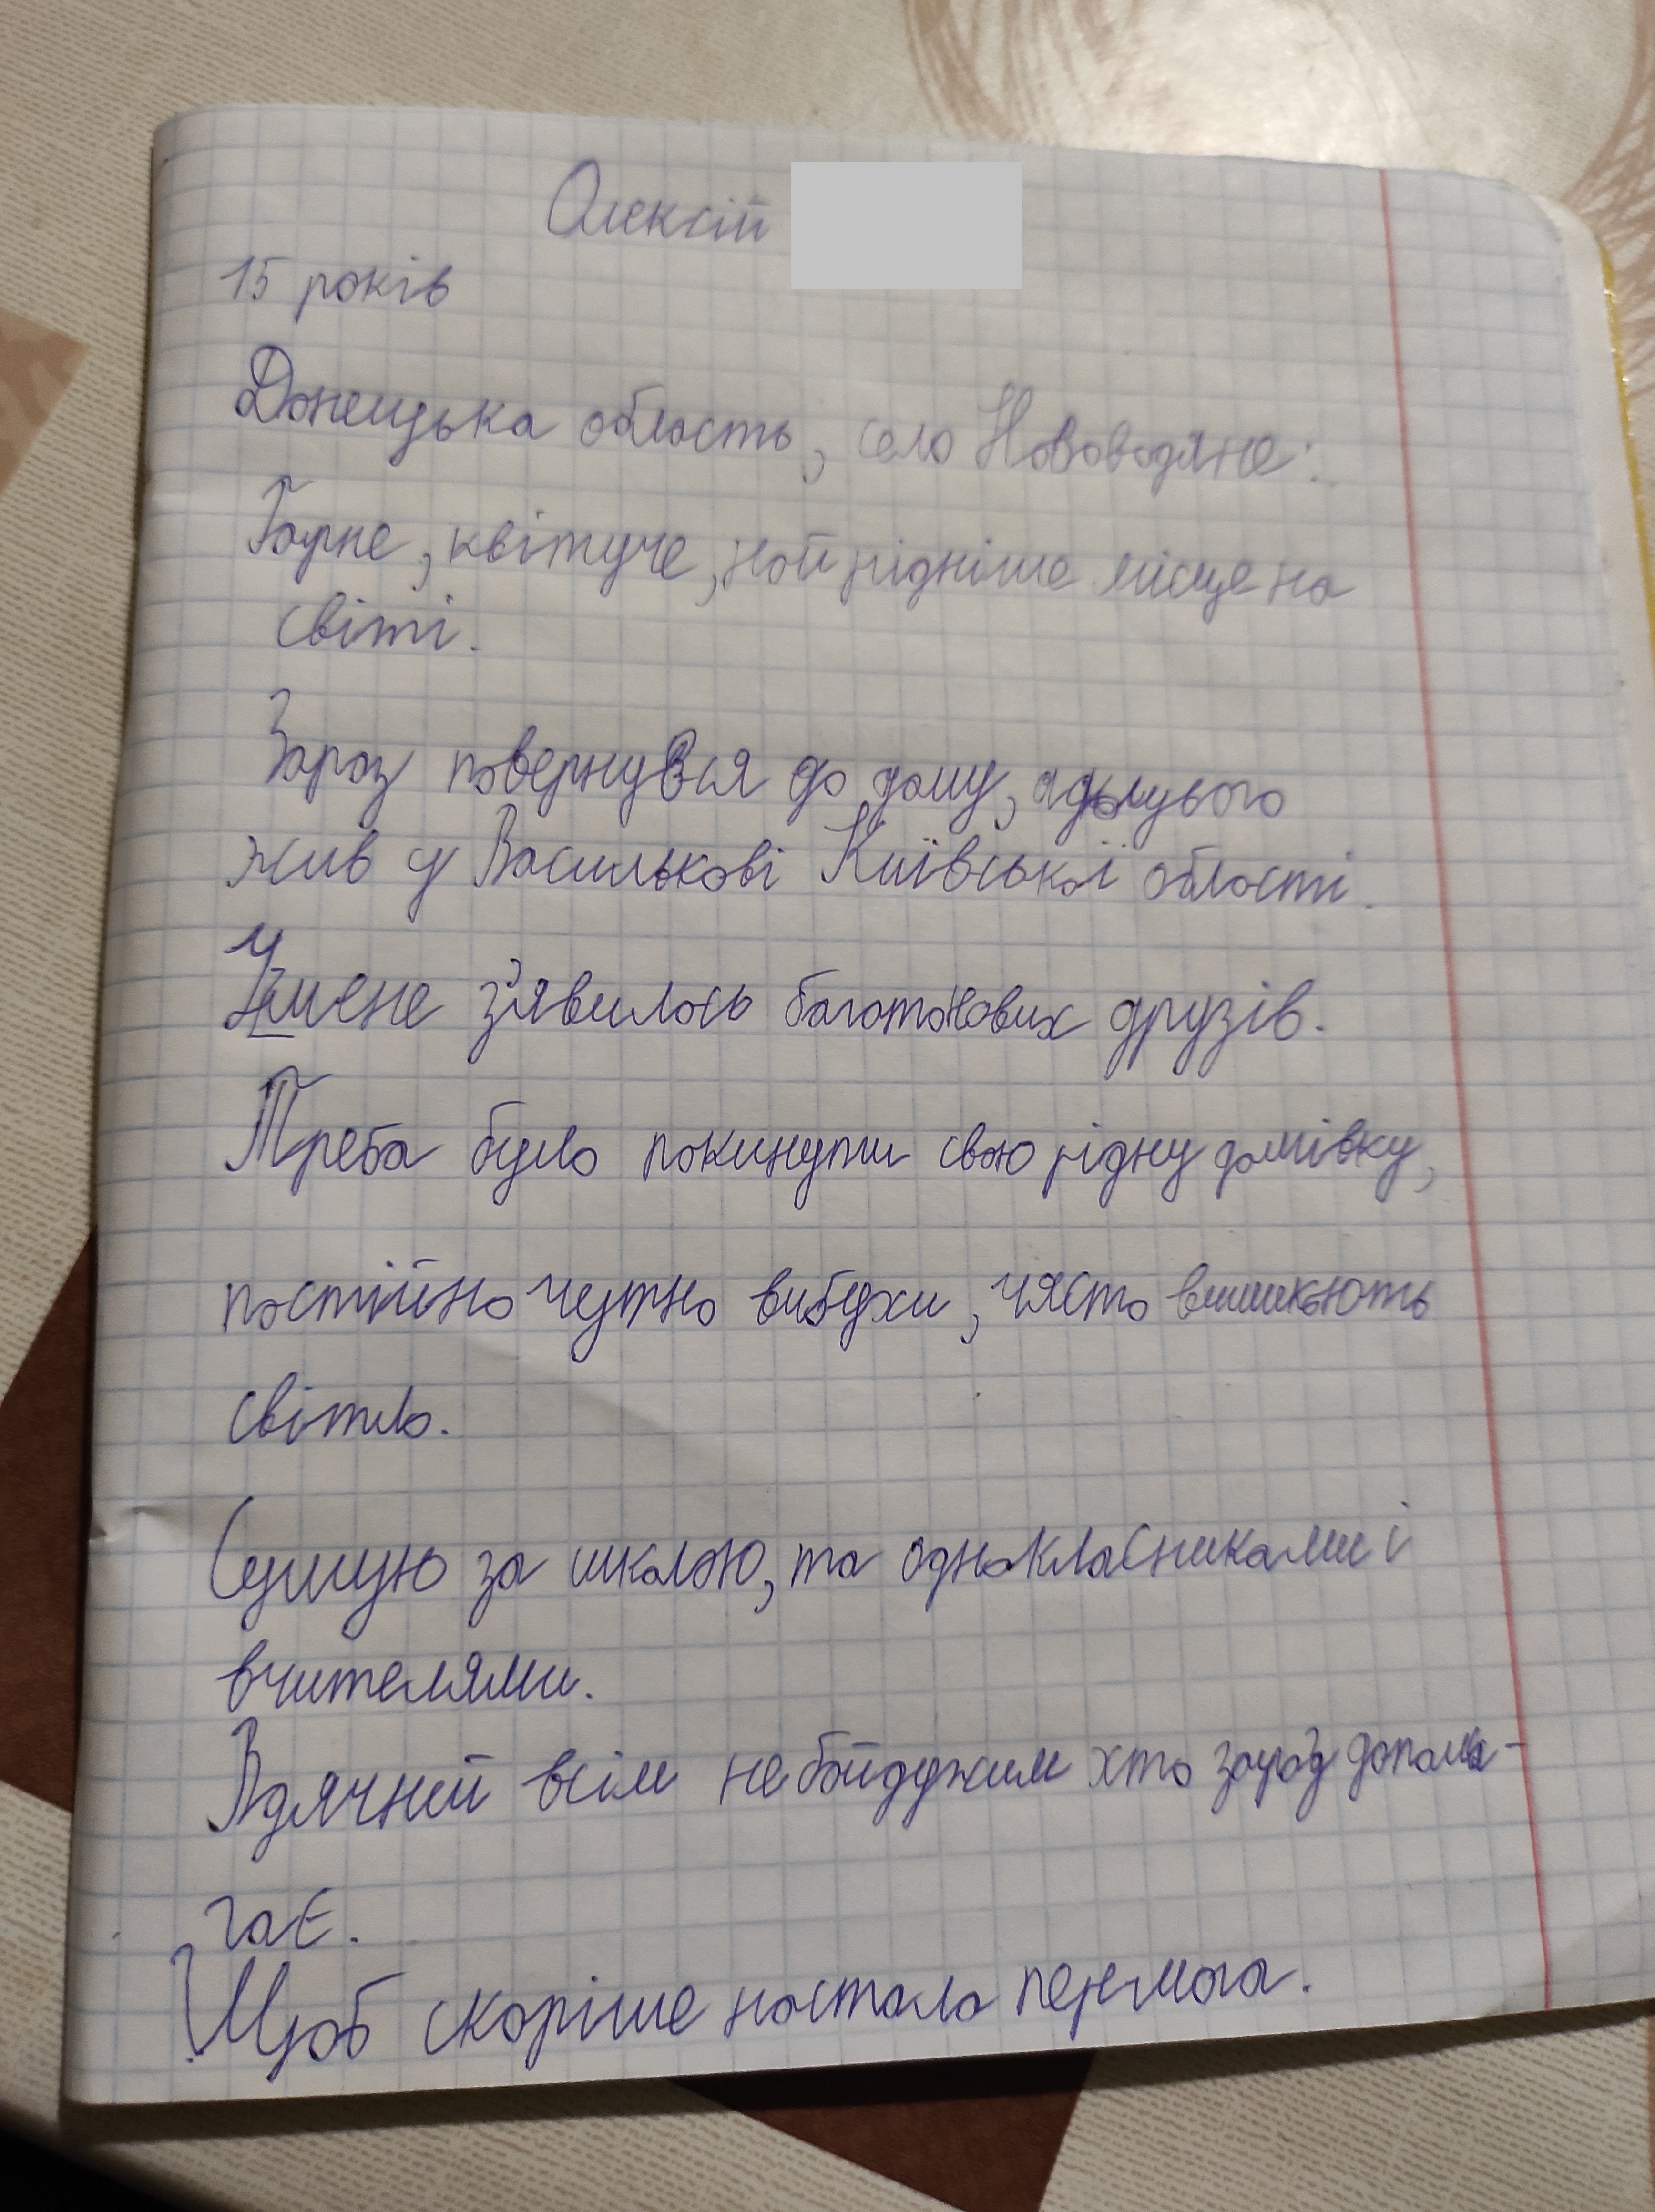 Олексій
15 років
Донецька область, село Нововодяне.
Гарне, квітуче, найрідніше місце на
світі.
Зараз повернувся до дому, а до цього
жив у Василькові Київської області.
У мене з'явилось багато нових друзів.
Треба було покинути свою рідну домівку,
постійно чутно вибухи, часто вимикають
світло.
Сумую за школою, та однокласниками і
вчителями.
Вдячний всім небайдужим хто зараз допома-
гає.
Щоб скоріше настала перемога.